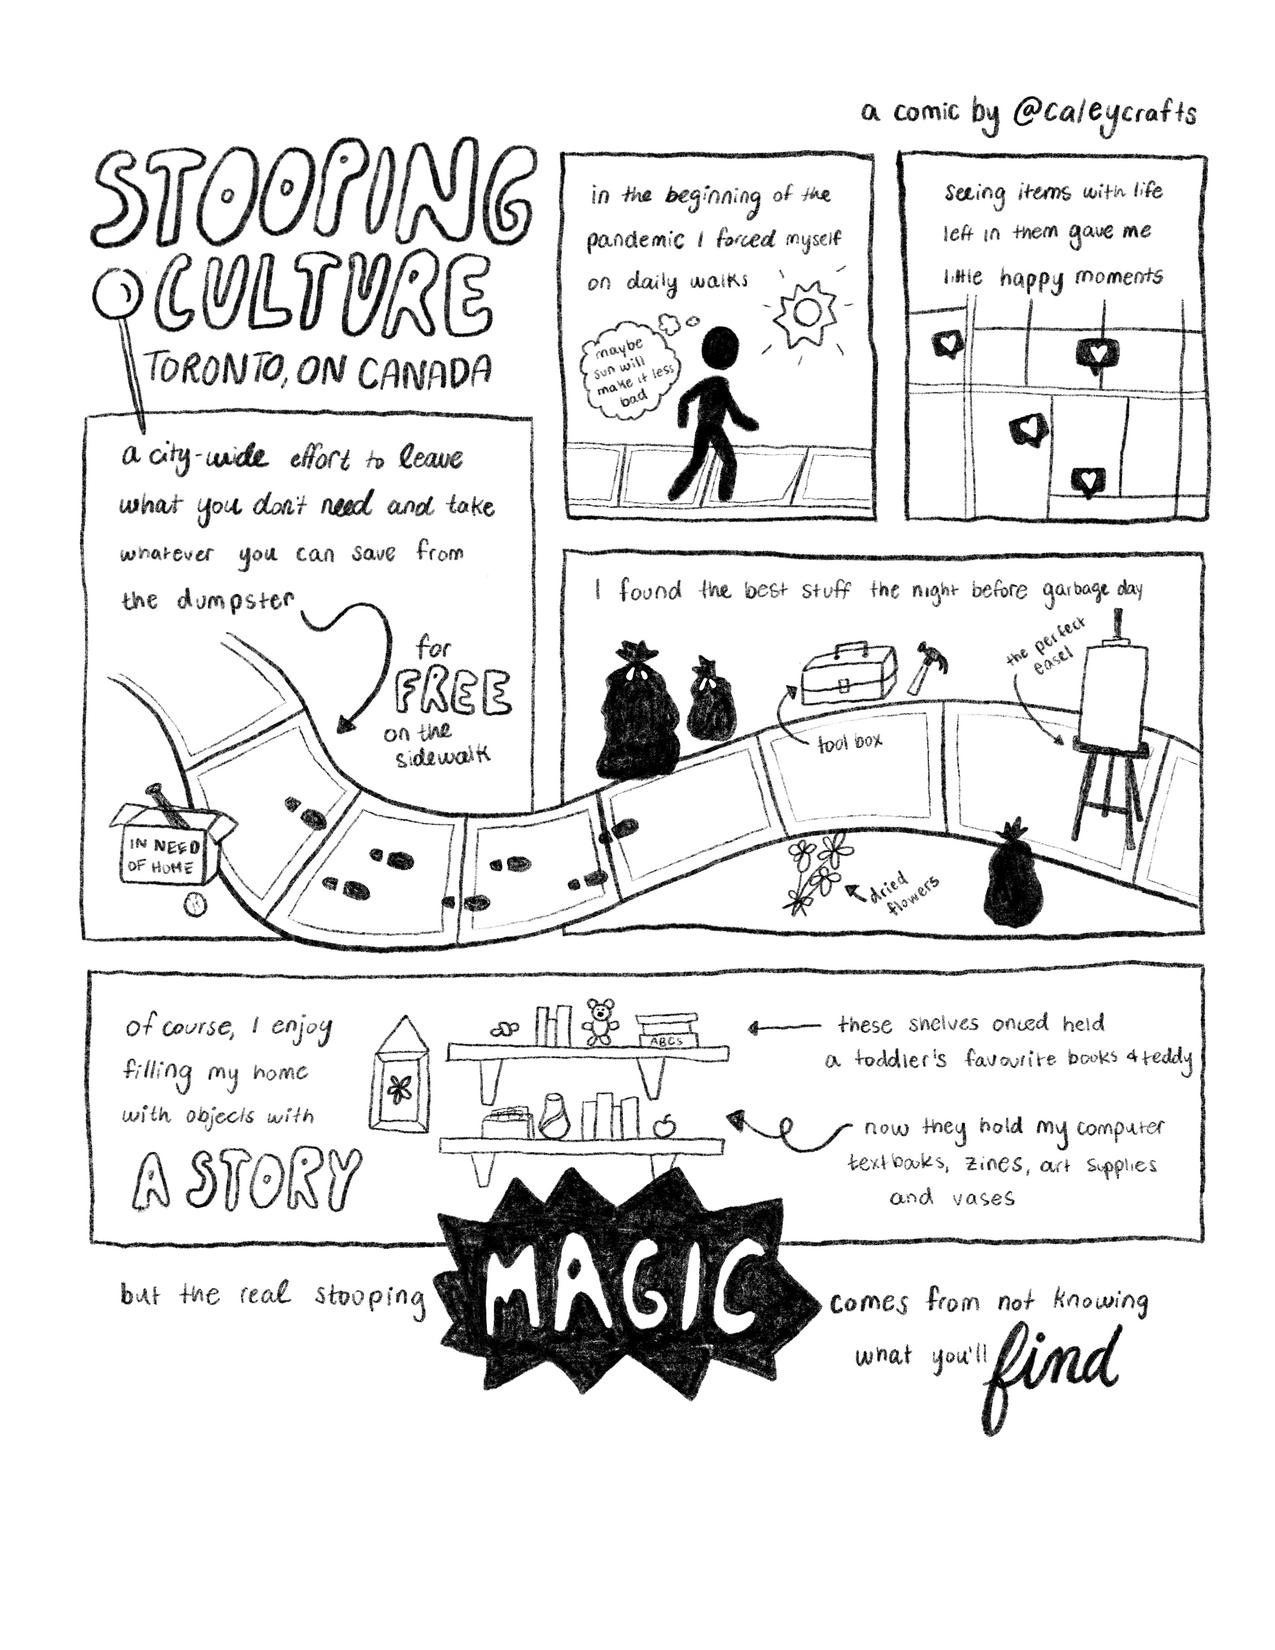 a comic by @caleycrafts
STOOPING
CULTURE
TORONTO, ON CANADA
a city-wide effort to leave
what you don't need and take
whatever you can save from
the dumpster
for
FREE
on the
sidewalk
IN NEED
OF HOME
in the beginning of the
pandemic I forced myself
on daily walks
maybe
sun will
make it less
bad
seeing items with life
left in them gave me
little happy moments
I found the best stuff the night before garbage day
the perfect
easel
tool box
dried
flowers
of course, I enjoy
filling my home
with objects with
A STORY
ABCs
these shelves onced held
a toddler's favourite books & teddy
now they hold my computer
textbooks, zines, art supplies
and vases
but the real stooping
MAGIC
comes from not knowing
what you'll find